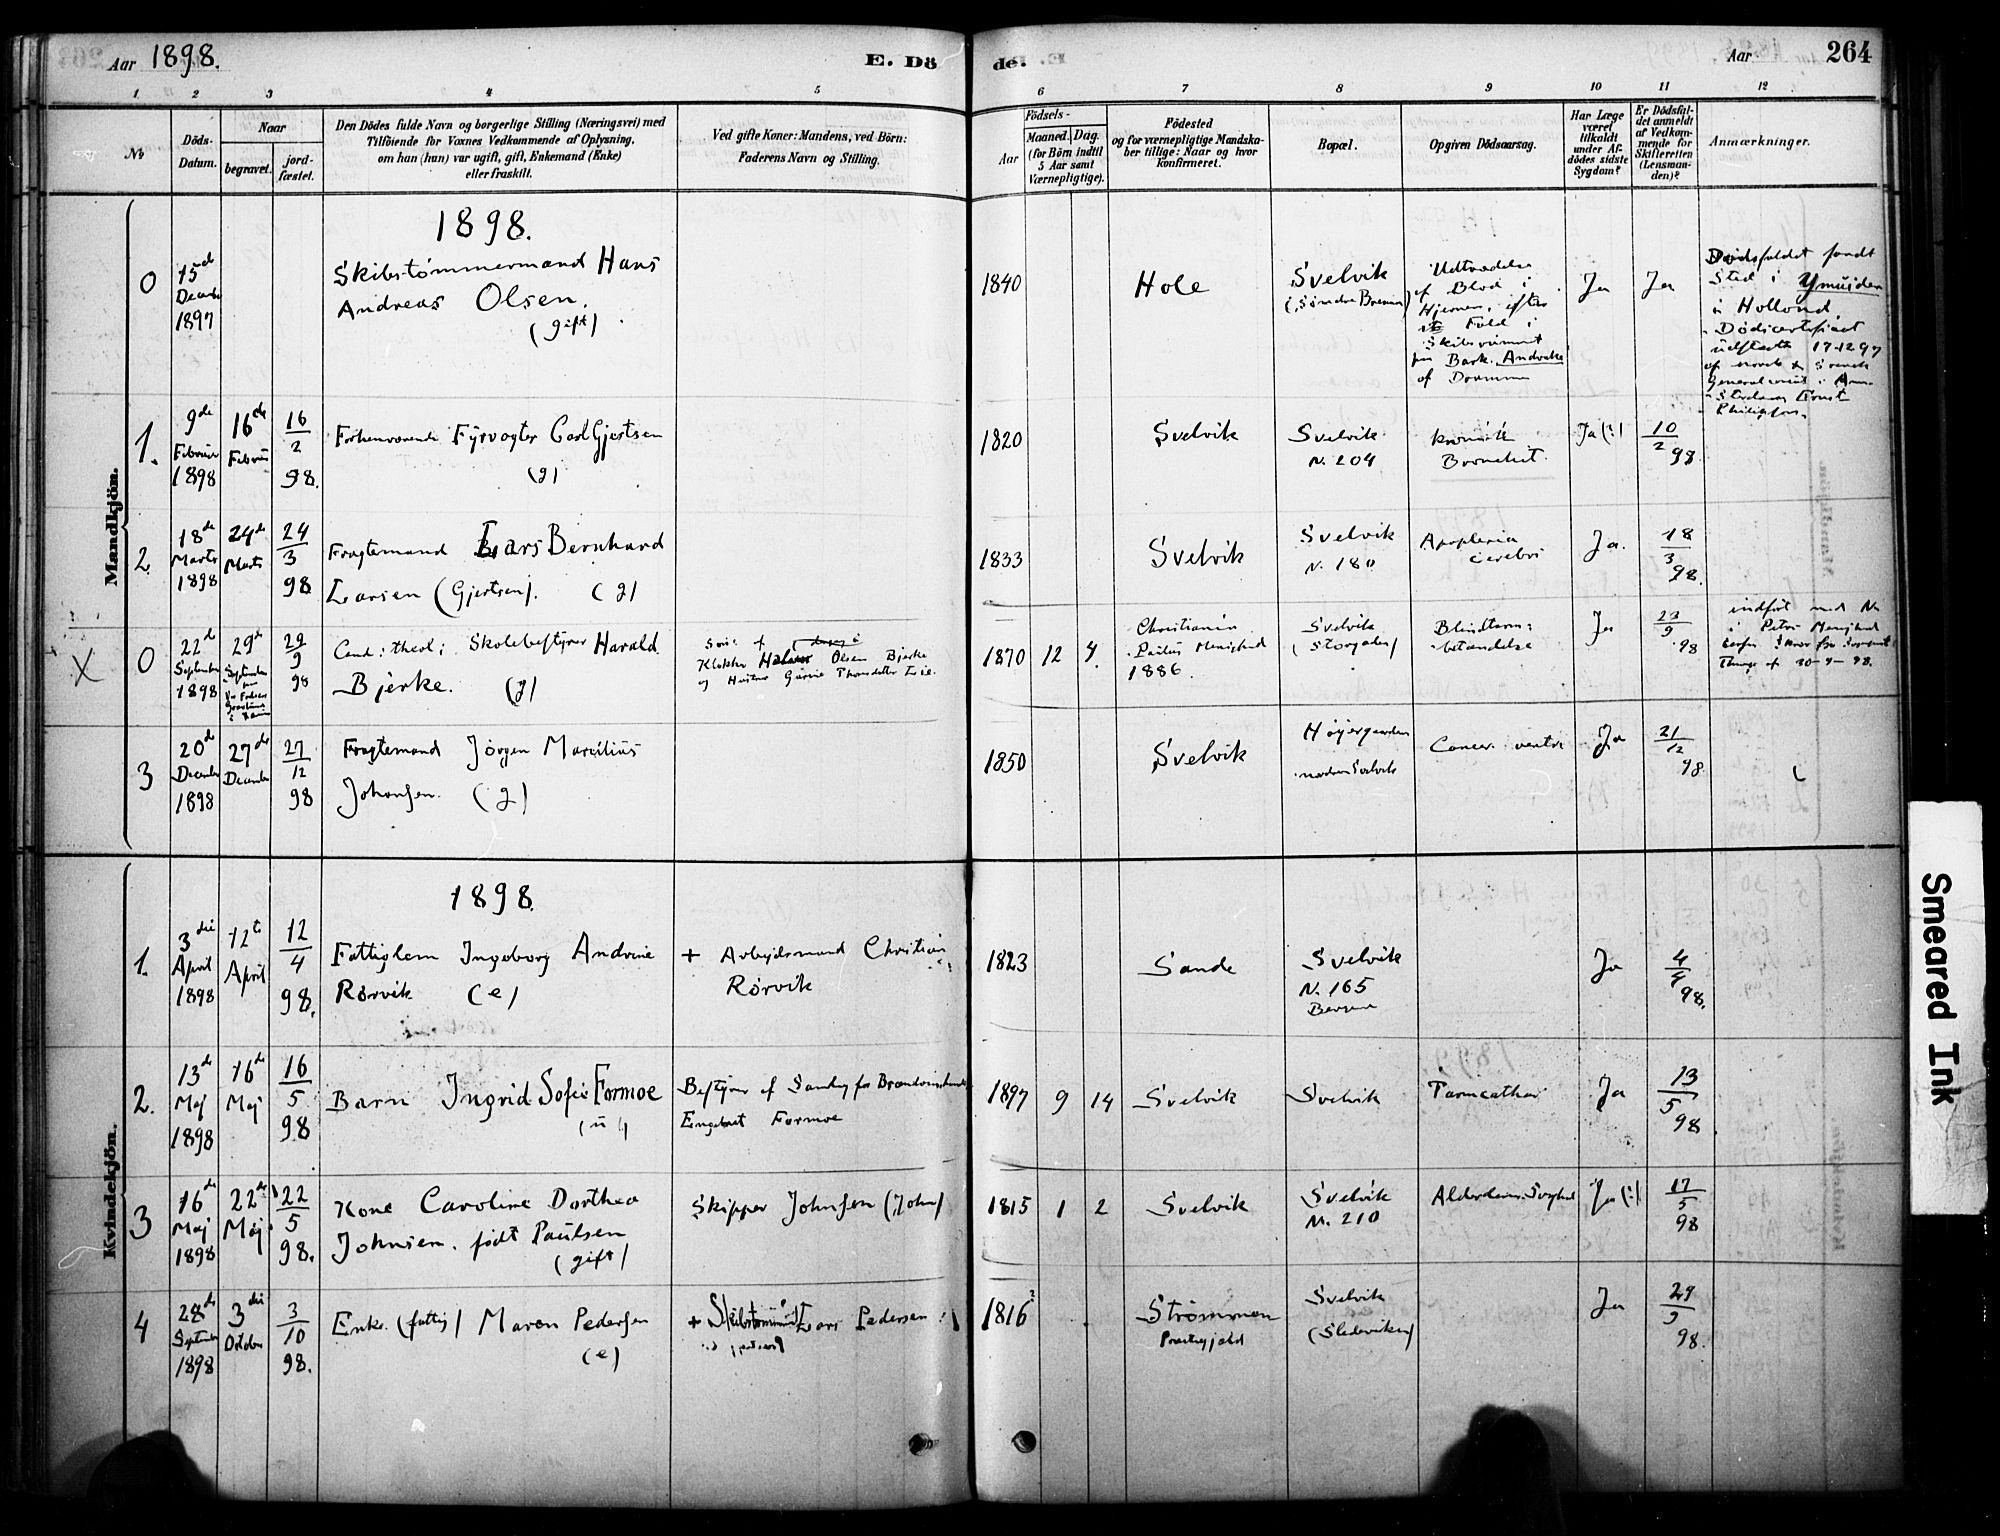 Aar 1898.
E. Döde.
Aar
264
1 2 3 4 5 6 7 8 9 10 11 12
No
Döds-Datum.
Naar
begravet.
jord-fæstet.
Den Dödes fulde Navn og borgerlige Stilling (Næringsvei) med
Tilföiende for Voxnes Vedkommende af Oplysning,
om han (hun) var ugift, gift, Enkemand (Enke)
eller fraskilt.
Ved gifte Koner: Mandens, ved Börn:
Faderens Navn og Stilling.
Födsels-
Aar
Maaned. Dag.
(for Börn indtil
5 Aar samt
Værnepligtige).
Födested
og for værnepligtige Mandska-
ber tillige: Naar og hvor
konfirmeret.
Bopæl.
Opgiven Dödsaarsag.
Har Læge
været
tilkaldt
under Af-
dödes sidste
Sygdom?
Er Dödsfal-
det anmeldt
af Vedkom-
mende for
Skifteretten
(Lensman-
den)?
Anmærkninger.
Mandkjön.
1898.
0
15de
Decembr
1897
Skibstømmermand Hans
Andreas Olsen.
(gift)
1840
Hole
Svelvik
(Søndre
Udtrædelse
af Blod i
Hjernen, efter
Fald i
Skibsrummet
paa Bark. Andvake
af Drammen
Ja
Ja
Dødsfaldet fandt
Sted i Ymuiden
i Holland.
udstedt 17-12 97
af norsk & svensk
Philipson.
1.
9de
Februar
1898
16de
Februar
16/2 98.
Forhenværende Fyrvogter Carl Gjertsen
(g)
1820
Svelvik
Svelvik
N. 204
kronisk
Ja (:)
10/2 98
2.
18de
Marts
1898
24de
Marts
24/3 98
Fragtemand Lars Bernhard
Larsen (Gjertsen). (g)
1833
Svelvik
Svelvik
N. 180
Apoplexia
cerebri
Ja.
18/3 98.
X
0
22de
September
1898
29de
September
29/9 98
Cand: theol: Skolebestyrer Harald
Bjerke. (g)
Søn af
Klokker Olsen Bjerke
og Hustru
1870 12 4.
Christiania
Paulus Menighed
1886.
Svelvik
(Storgaten)
Blindtarms-
betændelse
Ja
23/9 98
indført med No
i Petri Menighed
30-9-98.
3
20de
December
1898
27de
December
27/12 98
Fragtemand Jørgen Marelius
Johansen. (g)
1850
Svelvik
Høyergaarden
nordre Svelvik
Cancer ventr
Ja
21/12 98
Kvindekjön.
1898.
1.
3die
April
1898
12te
April
12/4 98.
Fattiglem Ingeborg Andrine
Rørvik (e)
+ Arbeidsmand Christian
Rørvik
1823
Sande
Svelvik
N. 165
Ja
4/4 98.
2.
13de
Maj
1898
16de
Maj
16/5 98
Barn Ingrid Sofie Formoe
(u)
Bestyrer af Samlag for Brændevinshandel
Engebret Formoe
1897 9 14
Svelvik
Svelvik
Tarmcathar
Ja
13/5 98
3
16de
Maj
1898
22de
Maj
22/5 98.
Kone Caroline Dorthea
Johnsen. født Paulsen
(gift)
Skipper Johnsen (John)
1815 1 2
Svelvik
Svelvik
M. 210
Ja (:)
17/5 98
4
28de
September
1898
3die
October
3/10 98.
Enke (fattig) Maren Pedersen
(e)
+ Lars Pedersen
1816?
Strømmen
Præstegjæld
Svelvik
(Sledeviken)
Ja
29/9 98.
Smeared Ink